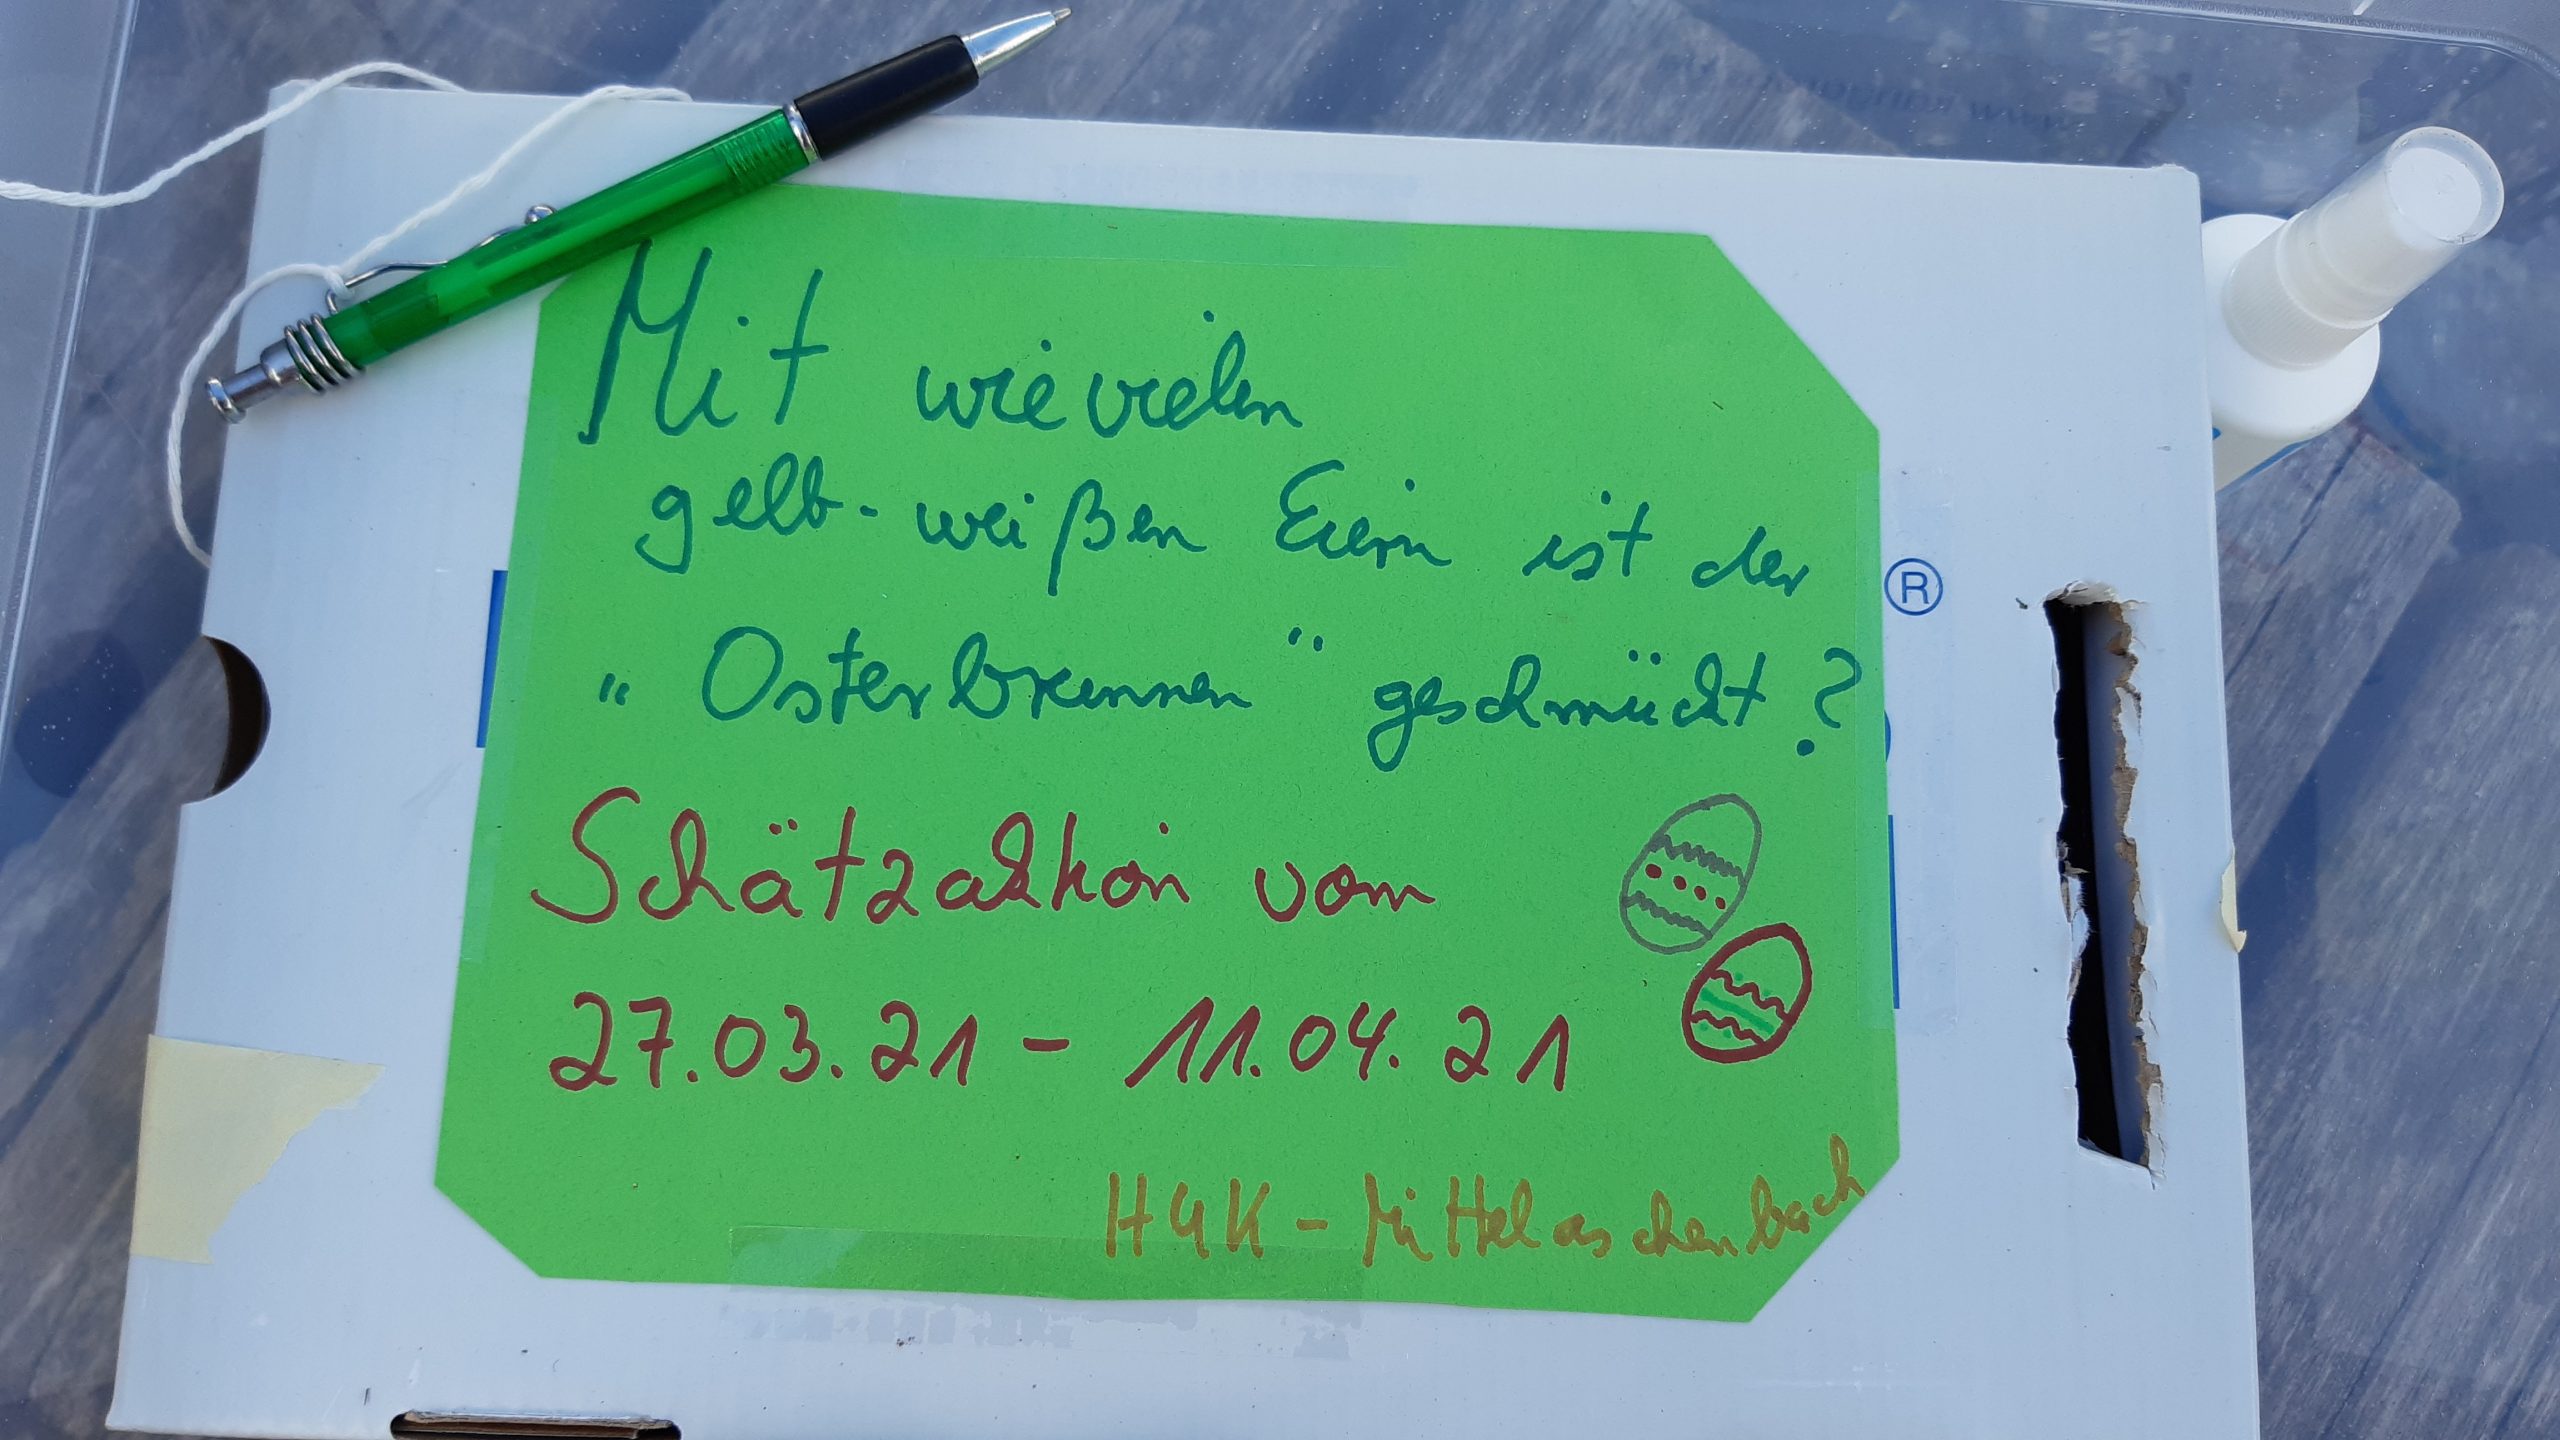 Mit wievielen
gelb-weißen Eiern ist der
„Osterbrunnen" geschmückt?
®
Schätzaktion vom
27.03.21 - 11.04.21
HGK - Mittelaschenbach